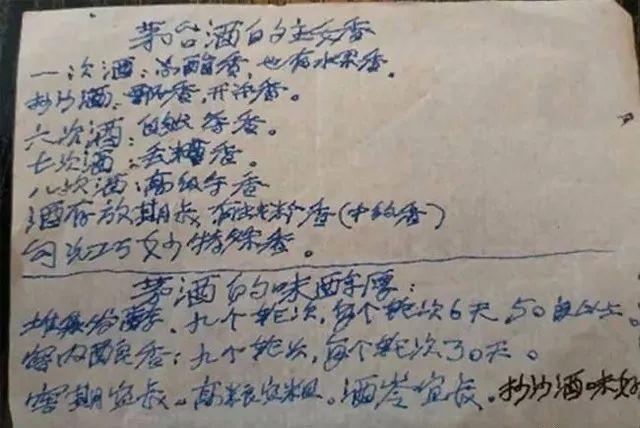 茅台酒的主要香
一次酒：总酯香，也有水果香。
抄沙酒：香，香。
六次酒：香。
七次酒：丢糟香。
八次酒：高级香
酒存放期长，有香（中药香）
勾兑巧妙特殊香。
茅酒的味醇厚：
堆积，九个轮次，每个轮次6天，50以上。
窖内香：九个轮次，每个轮次30天。
窖期宜长，高粮宜粗。酒宜长。抄沙酒味好